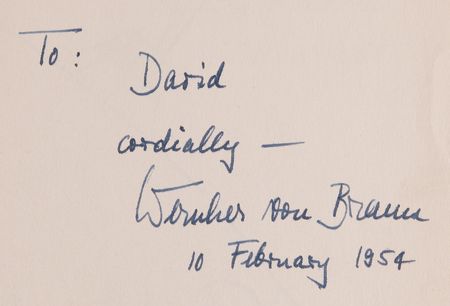 To:
David
cordially —
Wernher von Braun
10 February 1954